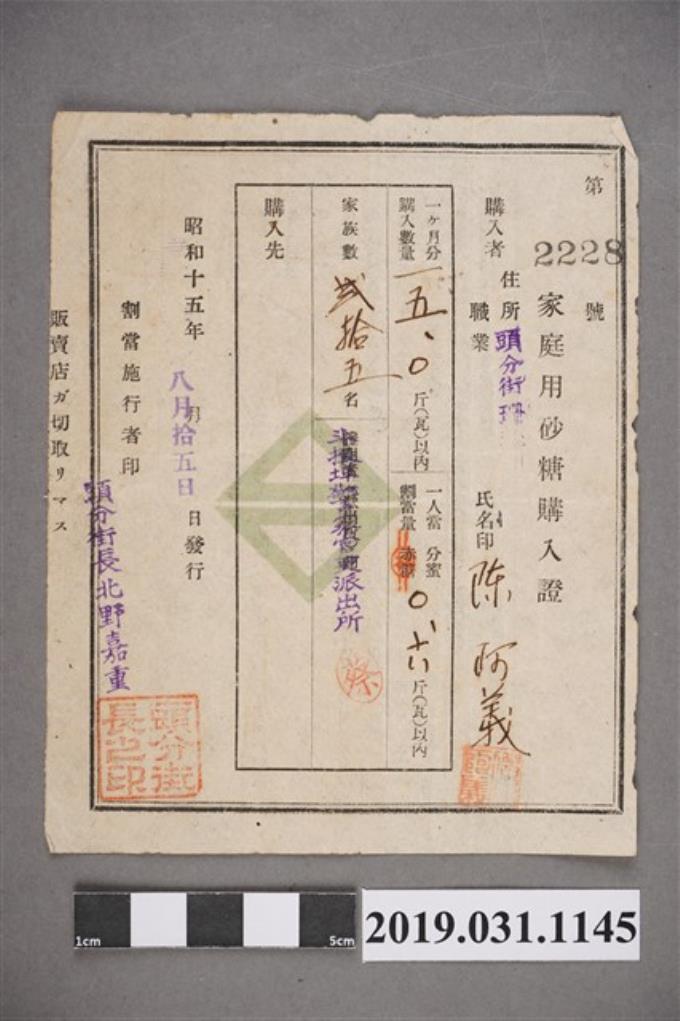 第 2228 號
家庭用砂糖購入證
購入者 住所 頭分街
職業
氏名印 陳阿義
一ヶ月分購入數量 一五、〇 斤(瓦)以内
一人當割當量 分蜜 赤糖 〇、六 斤(瓦)以内
家族數 貳拾五 名
派出所
購入先
昭和十五年 八月拾五日 月 日發行
割當施行者印
頭分街長北野嘉重
頭分街長之印
販賣店ガ切取リマス
1cm 5cm
2019.031.1145